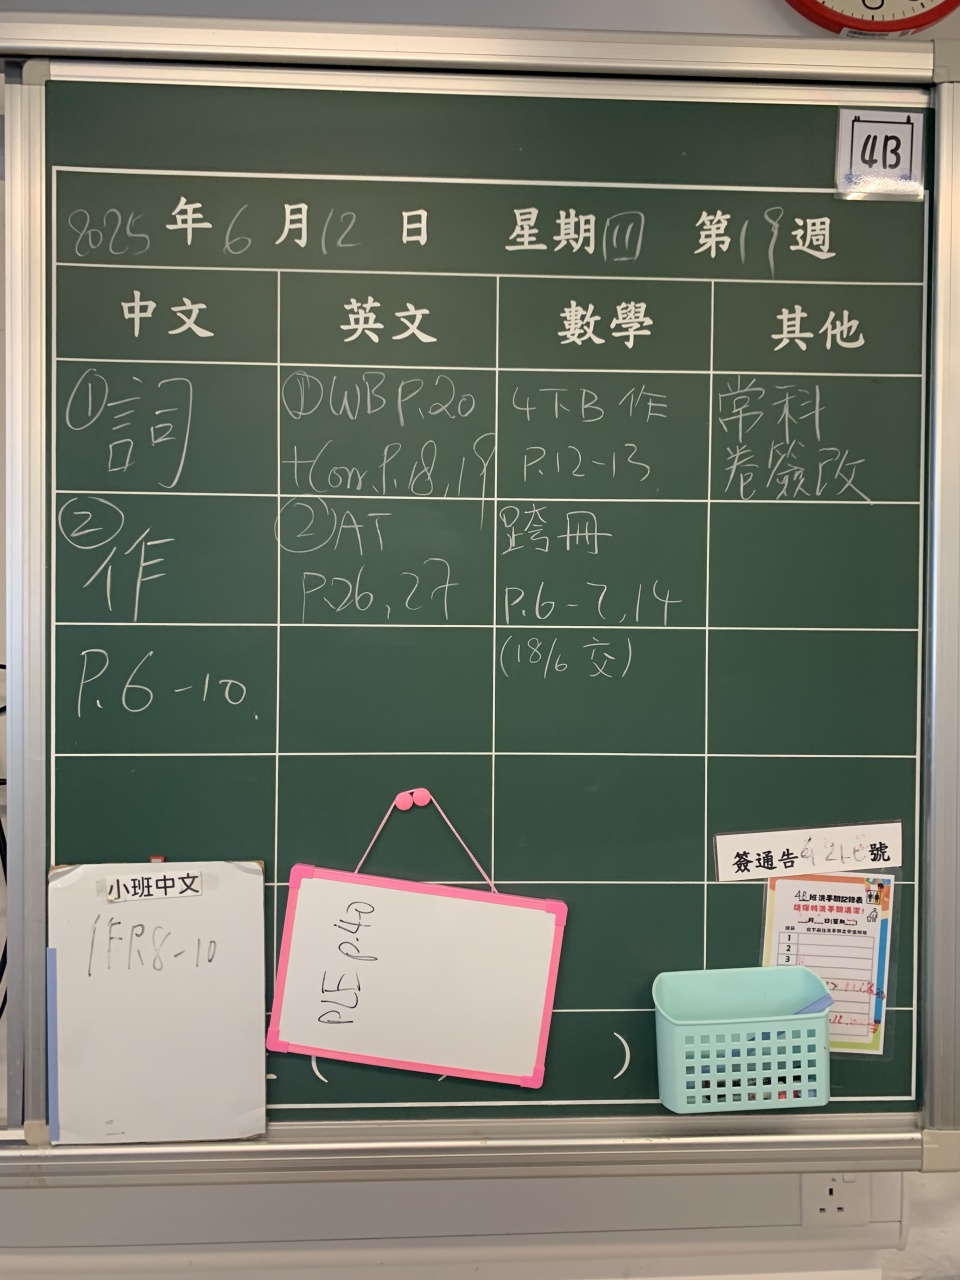 4B
2025年6月12日 星期四 第19週
中文 英文 數學 其他
①詞
②作
P.6-10.
①WB P.20
+Corr.P.18,19
②AT
P.26,27
4下B 作
P.12-13
跨冊
P.6-7,14
(18/6 交)
常科
卷簽改
小班中文
作P.8-10
PLE p.40
簽通告
號
4B班洗手間記錄表
請保持洗手間清潔!
1
2
3
( )